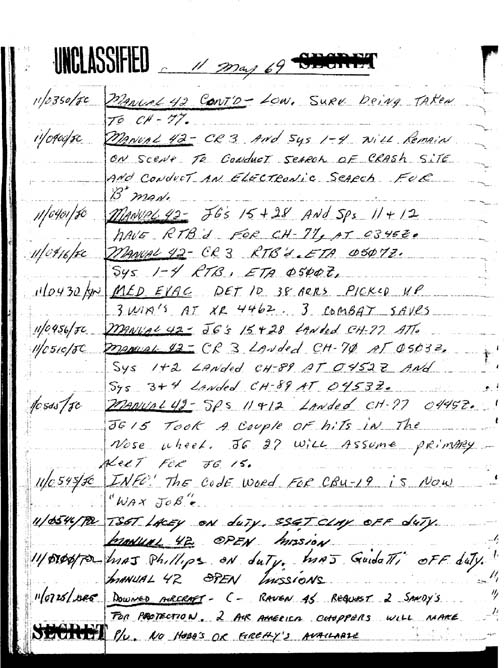 UNCLASSIFIED 11 May 69 SECRET
11/0350/JC MANUAL 42 CONT'D - LOW. SURV being TAKEN
TO CH-77.
11/0400/JC MANUAL 42 - CR 3 And Sys 1-4 WILL Remain
ON SCENE TO CONDUCT SEARCH OF CRASH SITE
AND CONDUCT AN ELECTRONIC SEARCH FOR
"B" MAN.
11/0401/JC MANUAL 42 - JG's 15+28 AND SPs 11+12
HAVE RTB'd FOR CH-77, AT 0345Z.
11/0416/JC MANUAL 42 - CR 3 RTB'd. ETA 0507Z.
Sys 1-4 RTB, ETA 0500Z.
11/0432 MED EVAC DET 10 38 ARRS PICKED UP
3 WIA's AT XR 4462. 3 COMBAT SAVES
11/0456/JC MANUAL 42 - JG's 15+28 LANDED CH-77 ATT.
11/0510/JC MANUAL 42 - CR 3 LANDED CH-70 AT 0503Z.
Sys 1+2 LANDED CH-89 AT 0452Z AND
Sys 3+4 LANDED CH-89 AT 0453Z.
MANUAL 42 - SPs 11+12 LANDED CH-77 0445Z.
JG 15 TOOK A COUPLE OF hiTS IN The
Nose wheel. JG 27 WILL ASSUME PRIMARY
ALERT FOR JG 15.
11/0545/JC INFO: THE CODE WORD FOR CBU-19 is NOW
"WAX JOB".
11/0546 TSGT LACEY ON duTy. SSGT CLAY OFF duTy.
MANUAL 42 OPEN MISSION.
11/0700 MAJ Phillips ON duTy. MAJ GuidoTTi OFF duTy.
MANUAL 42 OPEN MISSIONS
11/0725 DOWNED AIRCRAFT - C - RAVEN 45 REQUEST 2 SANDY'S
FOR PROTECTION. 2 AIR AMERICA CHOPPERS WILL MAKE
SECRET P/U. NO HOBO'S OR FIREFLY'S AVAILABLE